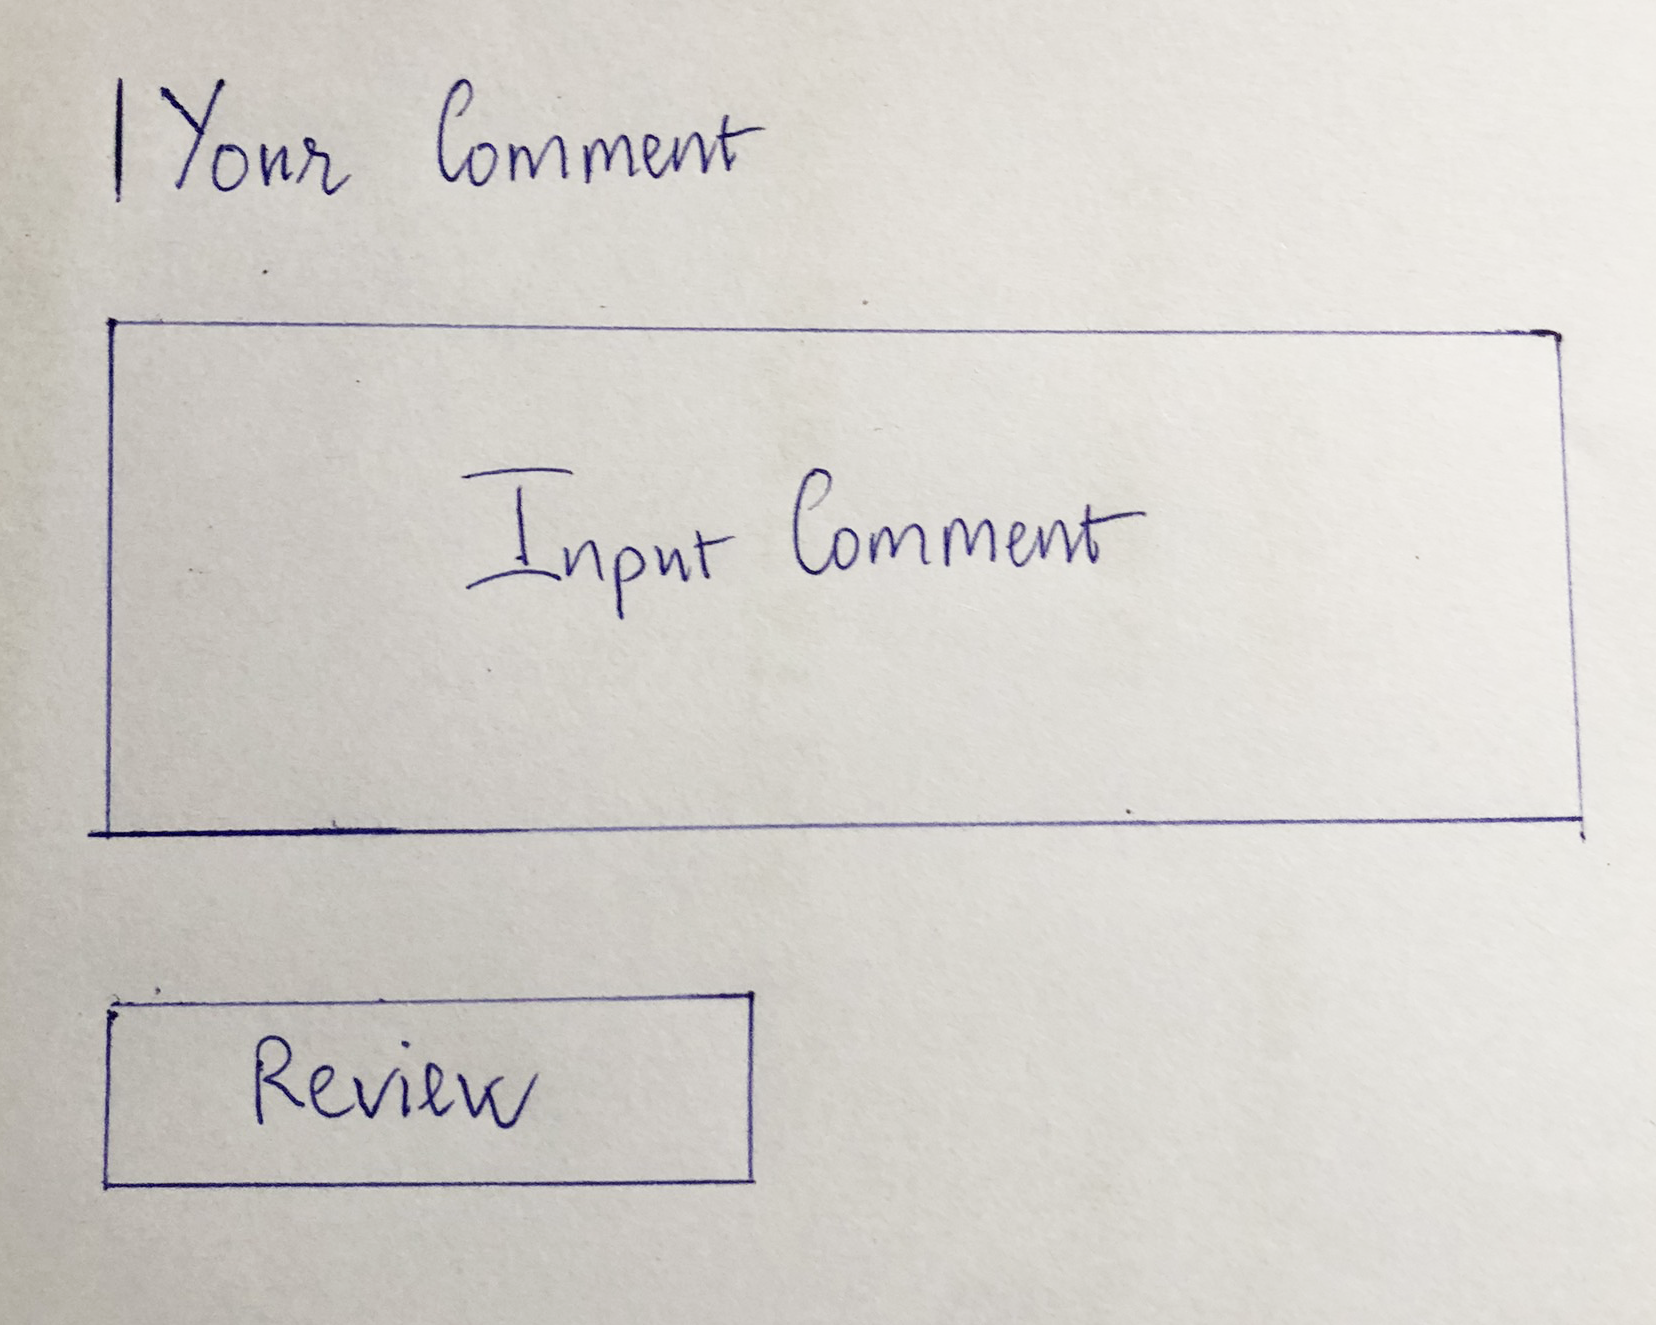 Your Comment
Input Comment
Review